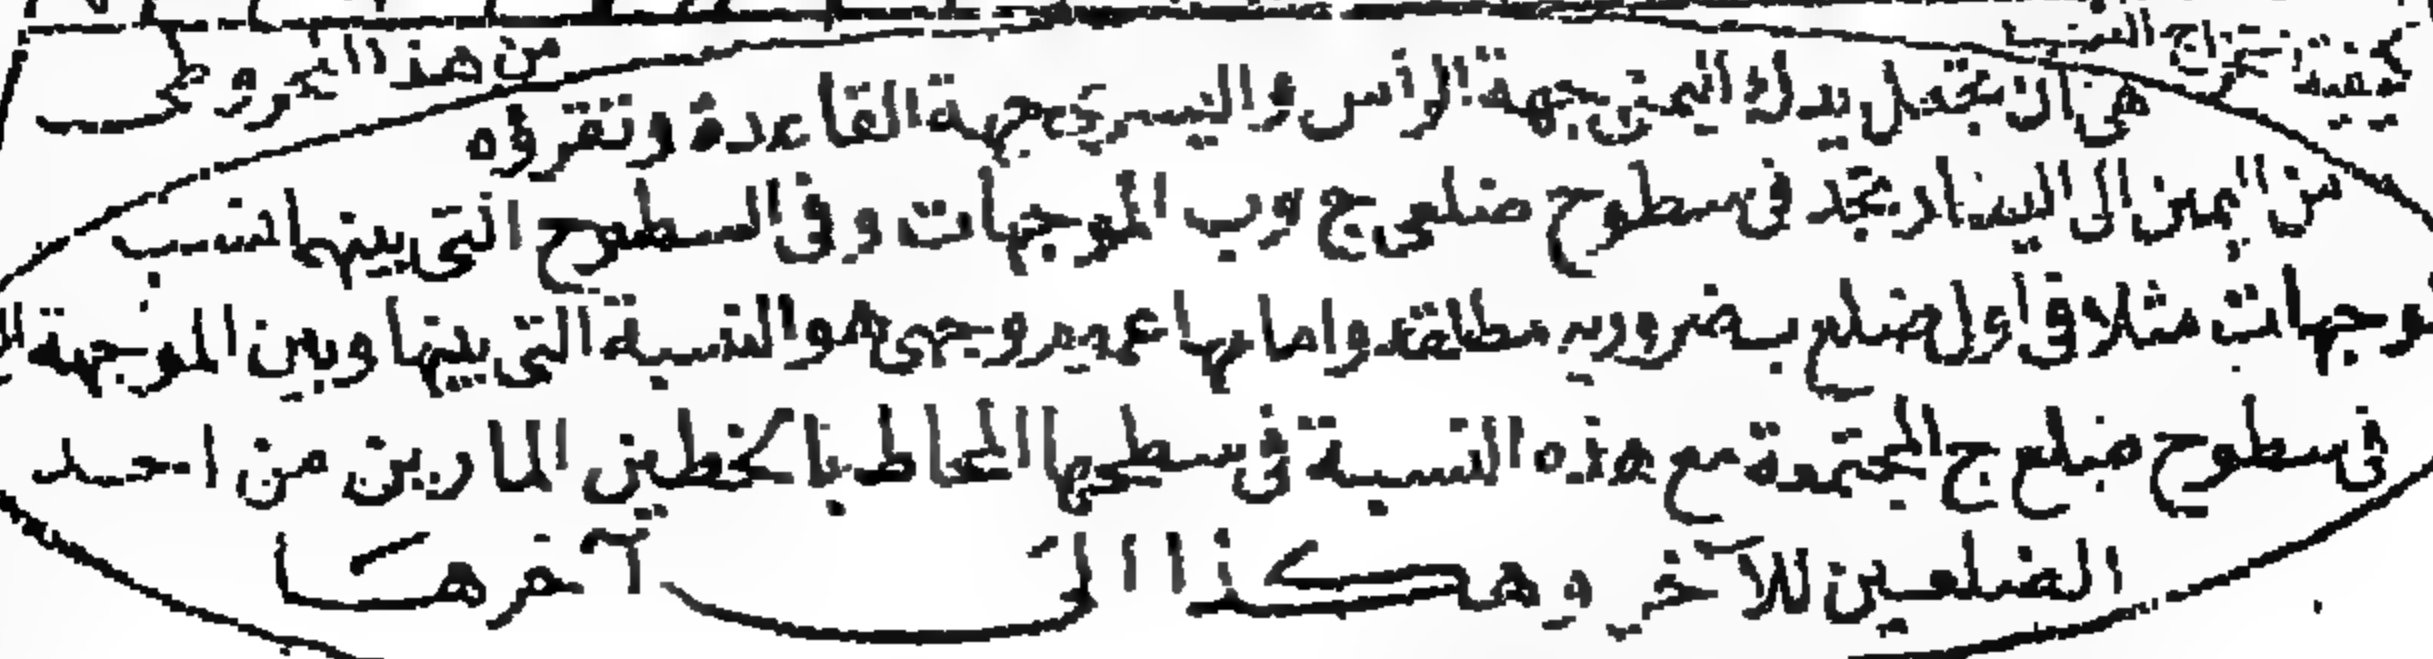 كيفية استخراج النسب
من هذا المخروط
هى ان تجعل يدك اليمنى جهة الرأس واليسرى جهة القاعدة وتقرؤه
من اليمين الى اليسار تجد فى سطوح ضلعى ج وب الموجهات وفى السطوح التى بينهما نسب
موجهات مثلا فى اول ضلع ب ضروريه مطلقه وامامها عموم وجهى هو النسبة التى بينها وبين الموجهة
فى سطوح ضلع ج المجتمعة مع هذه النسبة فى سطحها المحاط بالخطين المارين من احد
الضلعين للآخر وهكذا الى آخرها